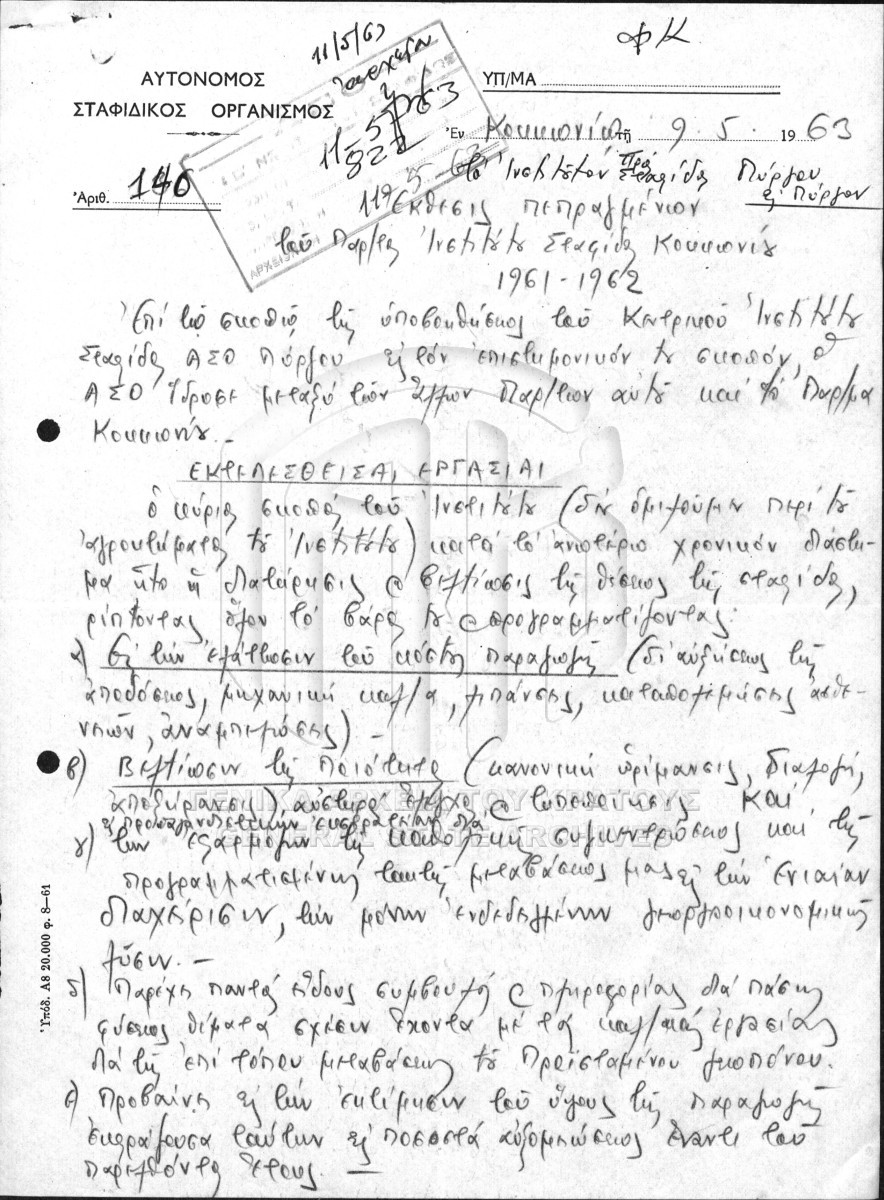 φΚ
11/5/63
ΑΥΤΟΝΟΜΟΣ
ΣΤΑΦΙΔΙΚΟΣ ΟΡΓΑΝΙΣΜΟΣ
ΥΠ/ΜΑ
11-5-63
822
Ἐν Κοκκωνίῳ τῇ 9. 5. 1963
Ἀριθ. 140
Τὸ Ἰνστιτοῦτον Σταφίδος Πύργου
Πρὸς
εἰς Πύργον
119 5-63
ΑΡΧΕΙΟΝ
Ἔκθεσις πεπραγμένων
τοῦ Παρ/τος Ἰνστιτούτου Σταφίδος Κοκκωνίου
1961-1962
Ἐπὶ τῷ σκοπῷ τῆς ὑποβοηθήσεως τοῦ Κεντρικοῦ Ἰνστιτούτου
Σταφίδος ΑΣΟ Πύργου εἰς τὸν ἐπιστημονικόν του σκοπόν, ὁ
ΑΣΟ ἵδρυσε μεταξὺ τῶν ἄλλων Παρ/των αὐτοῦ καὶ τὸ Παρ/μα
Κοκκωνίου.-
ΕΚΤΕΛΕΣΘΕΙΣΑΙ ΕΡΓΑΣΙΑΙ
Ὁ κύριος σκοπὸς τοῦ Ἰνστιτούτου (δὲν ὁμιλοῦμεν περὶ τοῦ
ἀγροκτήματος τοῦ Ἰνστιτούτου) κατὰ τὸ ἀνωτέρω χρονικὸν διάστη-
μα ἦτο ἡ διατήρησις & βελτίωσις τῆς θέσεως τῆς σταφίδος,
ρίπτοντας ὅλον τὸ βάρος του & προγραμματίζοντας:
α) Εἰς τὴν ἐλάττωσιν τοῦ κόστους παραγωγῆς (δι' αὐξήσεως τῆς
ἀποδόσεως, μηχανικῆς καλ/ας, λιπάνσης, καταπολεμήσεως ἀσθε-
νειῶν, ἀναμπελώσης).-
β) Βελτίωσιν τῆς ποιότητος (κανονικὴ ὡρίμανσις, διαλογή,
ἀποξήρανσις) αὐστηρὸς ἔλεγχος & τυποποιήσεις καὶ
εἰς προπαγανδιστικὴν ἐκστρατείαν διὰ
γ) τὴν ἐφαρμογὴν τῆς καθολικῆς συγκεντρώσεως καὶ τῆς
προγραμματισμένης ταύτης μεταβάσεως μας εἰς τὴν Ἑνιαίαν
Διαχείρισιν, τὴν μόνην ἐνδεδειγμένην γεωργοοικονομικὴν
λύσιν.-
δ) Παρέχει παντὸς εἴδους συμβουλὰς & πληροφορίας διὰ πάσης
φύσεως θέματα σχέσιν ἔχοντα μὲ τὰς καλ/κὰς ἐργασίας
διὰ τῆς ἐπὶ τόπου μεταβάσεως τοῦ Προϊσταμένου γεωπόνου.
ε) Προβαίνει εἰς τὴν ἐκτίμησιν τοῦ ὕψους τῆς παραγωγῆς
ἐκφράζουσα ταύτην εἰς ποσοστὰ αὐξομειώσεως ἔναντι τοῦ
παρελθόντος ἔτους.-
Ὑπόδ. Α8 20.000 φ. 8—61
ΓΕΝΙΚΑ ΑΡΧΕΙΑ ΤΟΥ ΚΡΑΤΟΥΣ
GENERAL STATE ARCHIVES